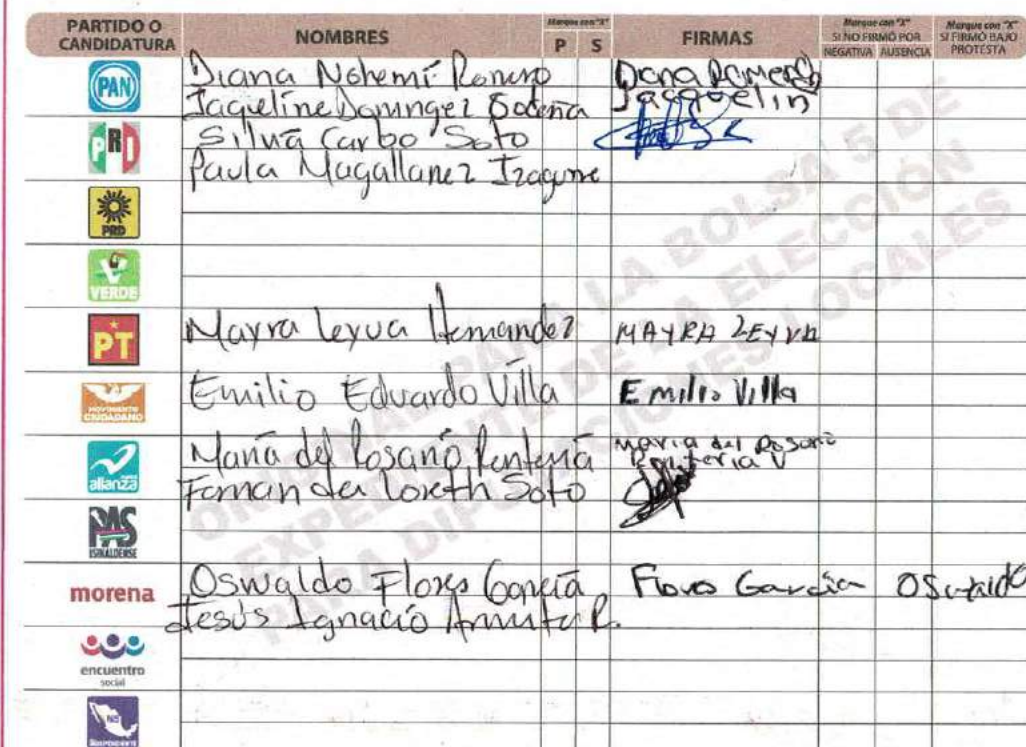 PARTIDO O CANDIDATURA NOMBRES Marque con "X" P S FIRMAS Marque con "X" SI NO FIRMÓ POR NEGATIVA AUSENCIA Marque con "X" SI FIRMÓ BAJO PROTESTA
PAN Diana Nohemí Romero Diana Romero
Jaqueline Dominguez Jacquelin
PRI Silvia Carbo Soto
Paula Magallanez Izaguirre
PRD
VERDE
PT Mayra Leyva Hernandez MAYRA LEYVA
MOVIMIENTO CIUDADANO Emilio Eduardo Villa Emilio Villa
alianza María del Rosario Rentería Maria del Rosario Renteria V
Fernanda Loreth Soto
PAS SINALOENSE
morena Oswaldo Flores García Flores García Oswaldo
Jesús Ignacio R.
encuentro social
INDEPENDIENTE
ORIGINAL PARA LA BOLSA 5 DE
EXPEDIENTE DE LA ELECCIÓN
PARA DIPUTACIONES LOCALES